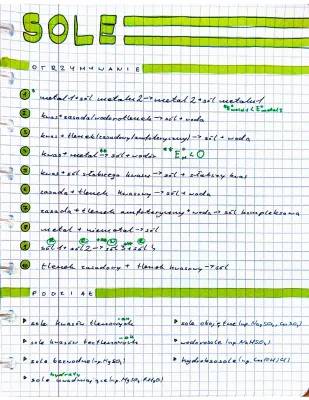 SOLE
OTRZYMYWANIE
1 * metal 1 + sól metalu 2 → metal 2 + sól metalu 1
* E° metalu 1 < E° metalu 2
2 kwas + zasada/wodorotlenek → sól + woda
3 kwas + tlenek (zasadowy/amfoteryczny) → sól + woda
4 kwas + metal ** → sól + wodór ** E° < 0
5 kwas + sól słabszego kwasu → sól + słabszy kwas
6 zasada + tlenek kwasowy → sól + woda
7 zasada + tlenek amfoteryczny + woda → sól kompleksowa
8 metal + niemetal → sól
9 sól 1 + sól 2 → sól 3 + sól 4
10 tlenek zasadowy + tlenek kwasowy → sól
PODZIAŁ
▸ sole kwasów tlenowych
▸ sole kwasów beztlenowych
▸ sole bezwodne (np. MgSO₄)
hydraty
▸ sole uwodnione (np. MgSO₄·7H₂O)
▸ sole obojętne (np. Na₂SO₄, CuSO₄)
▸ wodorosole (np. NaHSO₄)
▸ hydroksosole (np. Cu(OH)Cl)